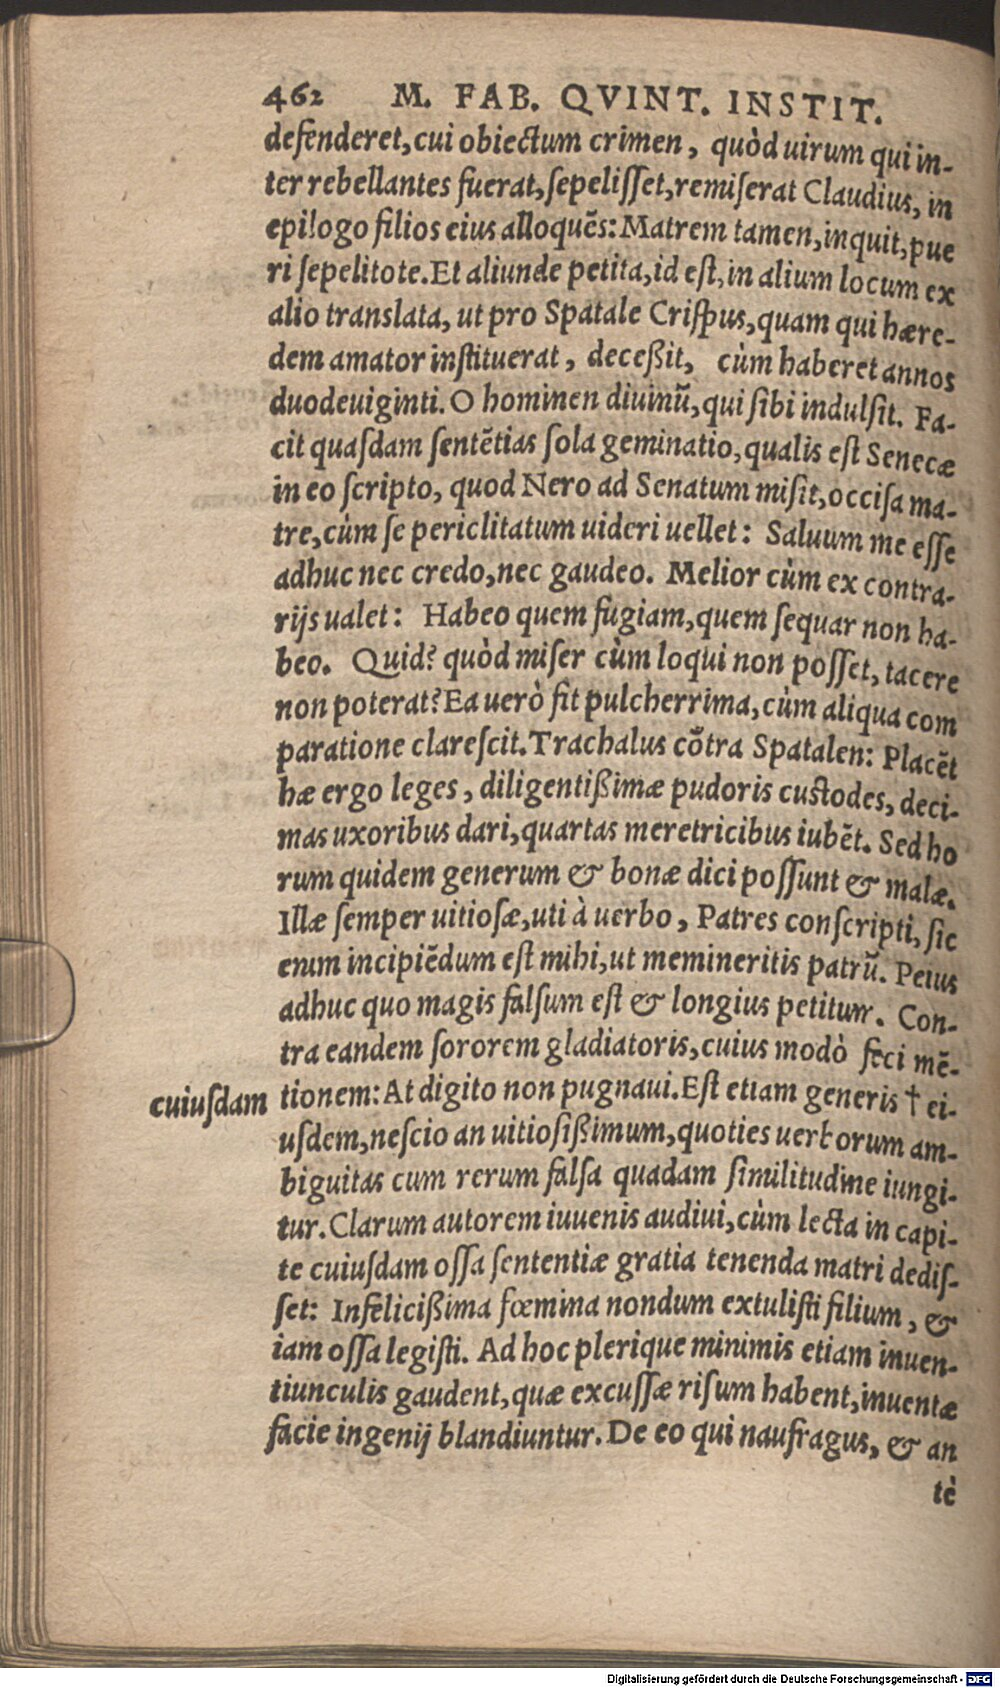 462 M. FAB. QVINT. INSTIT.
defenderet, cui obiectum crimen, quòd uirum qui in-
ter rebellantes fuerat, sepelisset, remiserat Claudius, in
epilogo filios eius alloquēs: Matrem tamen, inquit, pue
ri sepelitote. Et aliunde petita, id est, in alium locum ex
alio translata, ut pro Spatale Crispus, quam qui hære-
dem amator instituerat, deceßit, cùm haberet annos
duodeuiginti. O hominen diuinū, qui sibi indulsit. Fa-
cit quasdam sentētias sola geminatio, qualis est Senecæ
in eo scripto, quod Nero ad Senatum misit, occisa ma-
tre, cùm se periclitatum uideri uellet: Saluum me esse
adhuc nec credo, nec gaudeo. Melior cùm ex contra-
rijs ualet: Habeo quem fugiam, quem sequar non ha-
beo. Quid? quòd miser cùm loqui non posset, tacere
non poterat? Ea uerò fit pulcherrima, cùm aliqua com
paratione clarescit. Trachalus cōtra Spatalen: Placēt
hæ ergo leges, diligentißimæ pudoris custodes, deci-
mas uxoribus dari, quartas meretricibus iubēt. Sed ho
rum quidem generum & bonæ dici possunt & malæ.
Illæ semper uitiosæ, uti à uerbo, Patres conscripti, sic
enim incipiēdum est mihi, ut memineritis patrū. Peius
adhuc quo magis falsum est & longius petitum. Con-
tra eandem sororem gladiatoris, cuius modò feci mē-
cuiusdam tionem: At digito non pugnaui. Est etiam generis † ei-
usdem, nescio an uitiosißimum, quoties uerborum am-
biguitas cum rerum falsa quadam similitudine iungi-
tur. Clarum autorem iuuenis audiui, cùm lecta in capi-
te cuiusdam ossa sententiæ gratia tenenda matri dedis-
set: Infelicißima fœmina nondum extulisti filium, &
iam ossa legisti. Ad hoc plerique minimis etiam inuen-
tiunculis gaudent, quæ excussæ risum habent, inuentæ
facie ingenij blandiuntur. De eo qui naufragus, & an
tè
Digitalisierung gefördert durch die Deutsche Forschungsgemeinschaft - DFG